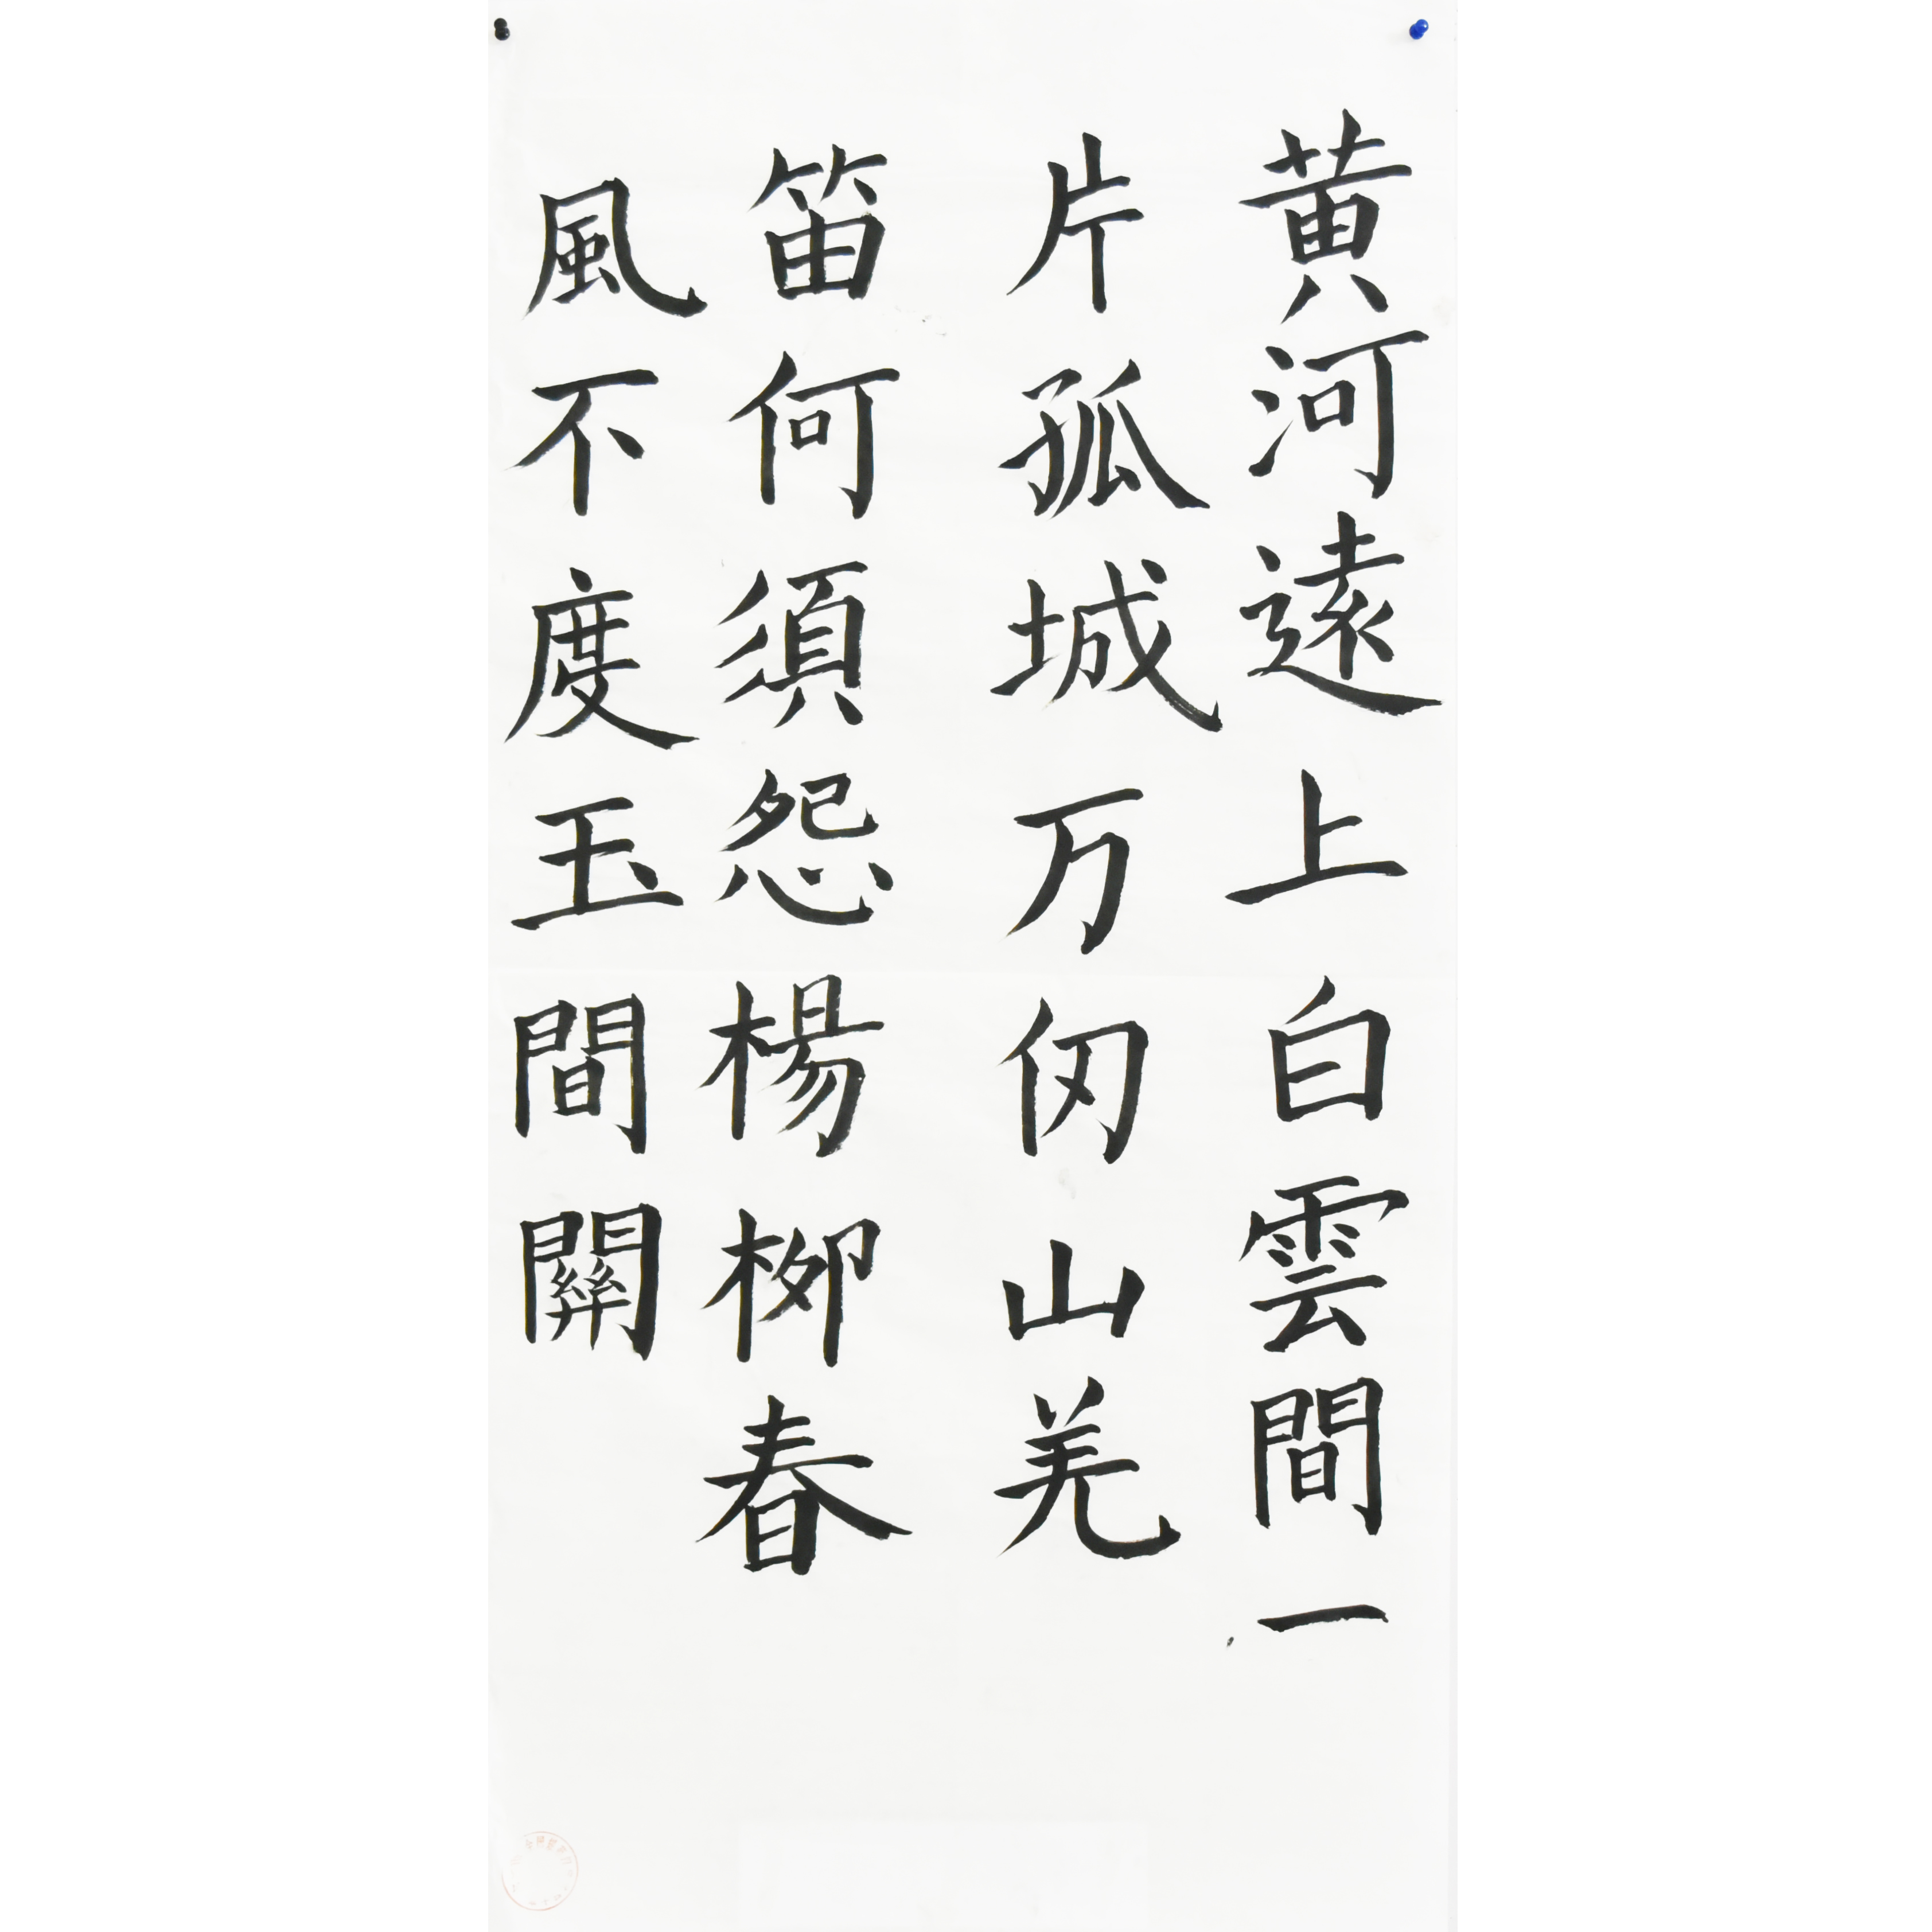 黄河遠上白雲間一
片孤城万仞山羌
笛何須怨楊柳春
風不度玉間關